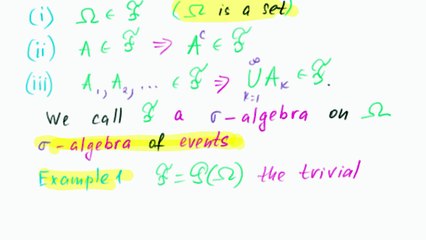 (i) Ω ∈ 𝓕 (Ω is a set)
(ii) A ∈ 𝓕 ⇒ Aᶜ ∈ 𝓕
(iii) A₁, A₂, ... ∈ 𝓕 ⇒ ∞⋃k=1 Aₖ ∈ 𝓕.
We call 𝓕 a σ-algebra on Ω
σ-algebra of events
Example 1 𝓕 = 𝒫(Ω) the trivial